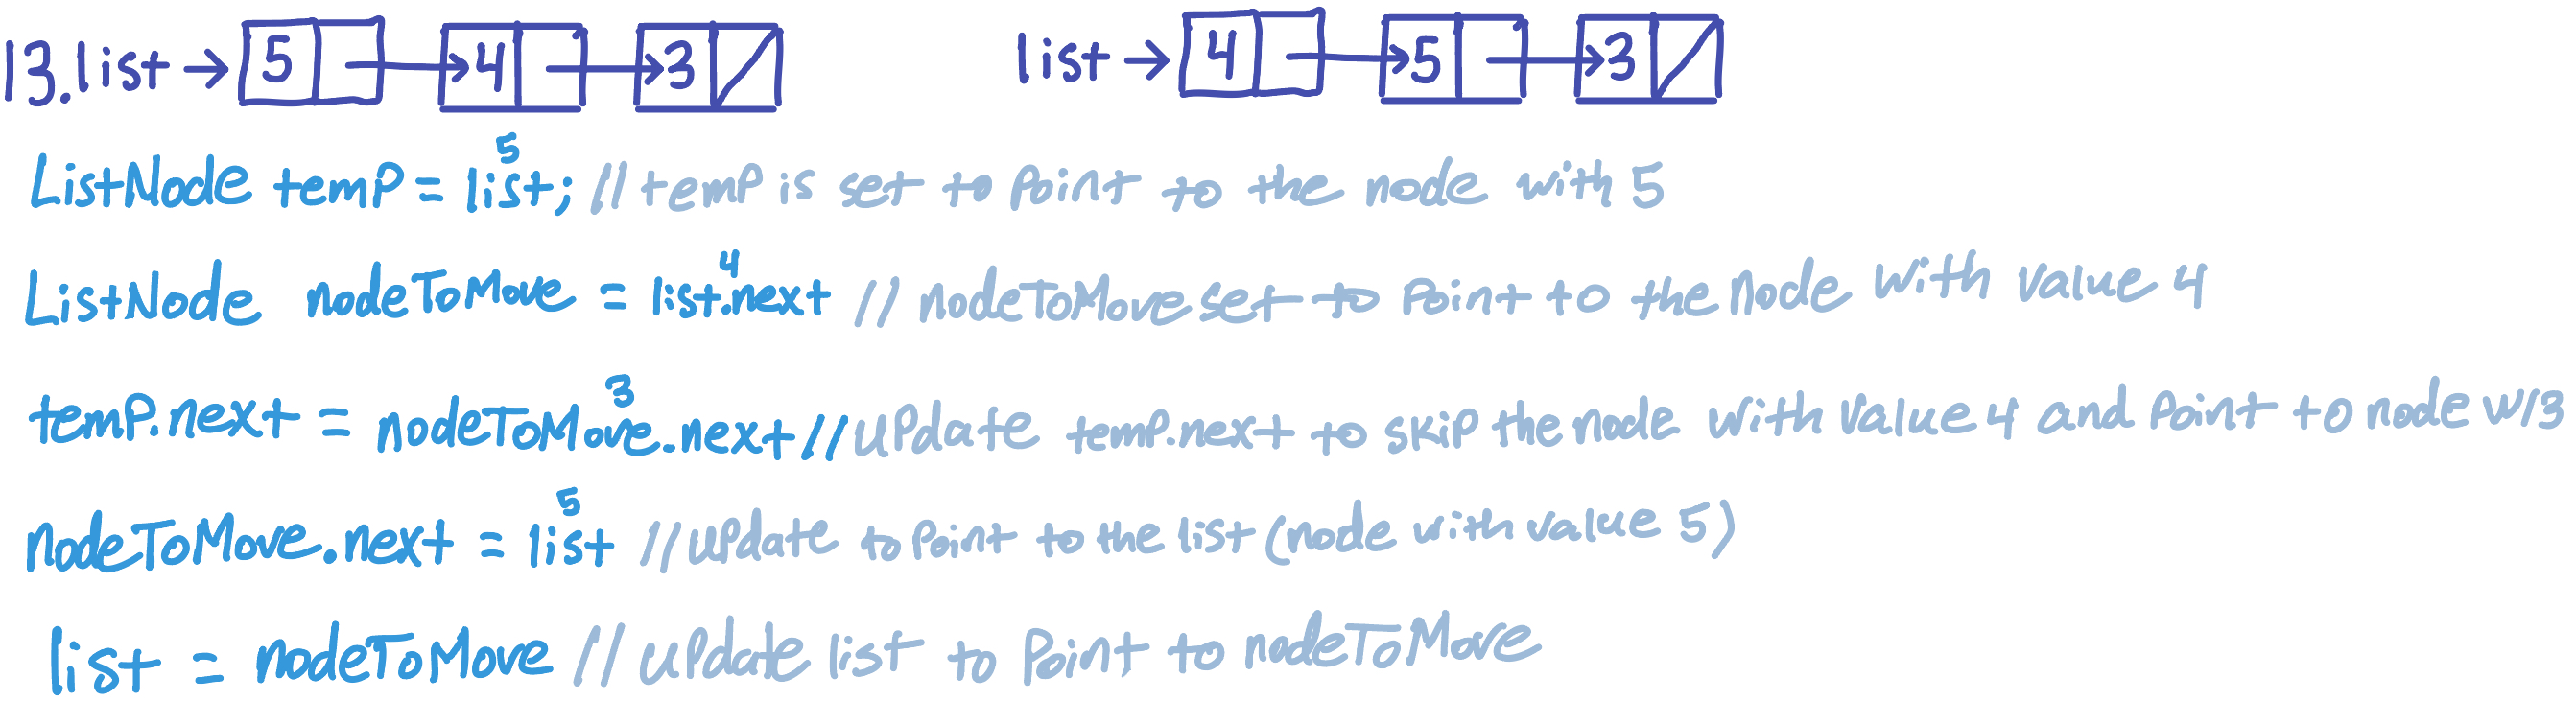 13. list → 5 4 3 list → 4 5 3
ListNode temp = list; 5 // temp is set to point to the node with 5
ListNode nodeToMove = list.next 4 // nodeToMove set to point to the node with value 4
temp.next = nodeToMove.next 3 // update temp.next to skip the node with value 4 and point to node w/3
nodeToMove.next = list 5 // update to point to the list (node with value 5)
list = nodeToMove // update list to point to nodeToMove